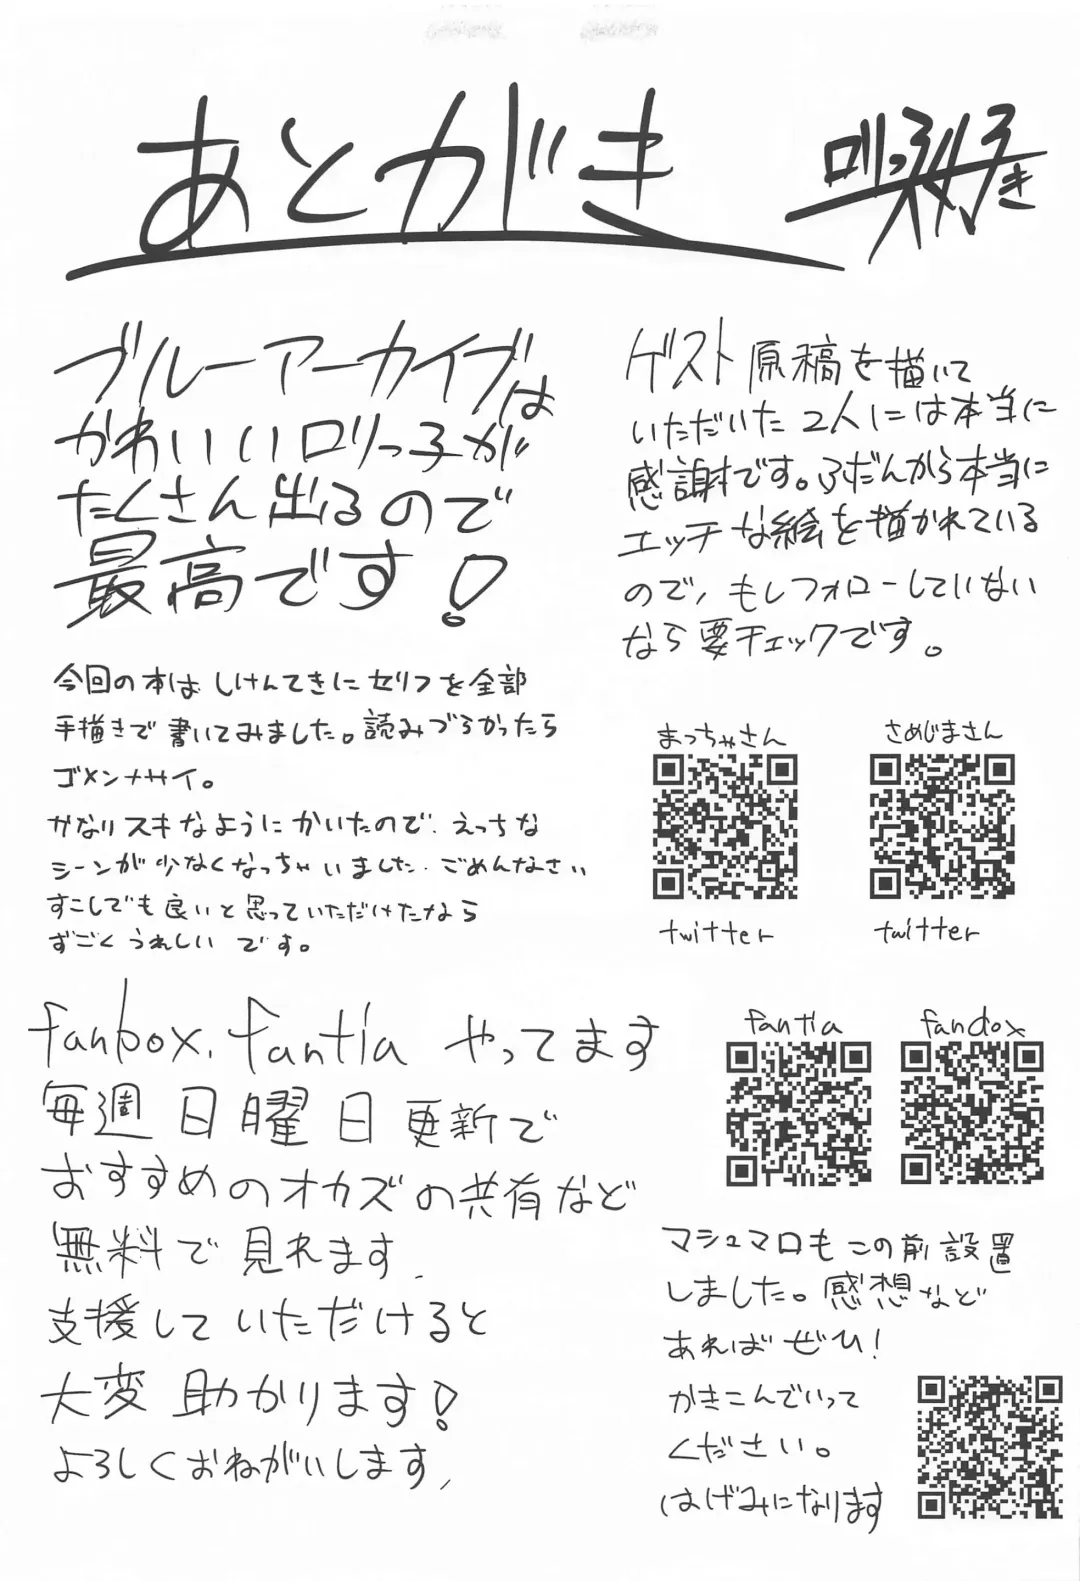 あとがき
ロリっ子好き
ブルーアーカイブは
かわいいロリっ子が
たくさん出るので
最高です!
今回の本は しけんてきに セリフを全部
手描きで 書いてみました。読みづらかったら
ゴメンナサイ。
かなりスキなようにかいたので、えっちな
シーンが少なくなっちゃいました、ごめんなさい
すこしでも良いと思っていただけたなら
すごくうれしいです。
ゲスト原稿を描いて
いただいた2人には本当に
感謝です。ふだんから本当に
エッチな絵を描かれている
ので、もしフォローしていない
なら要チェックです。
まっちゃさん
twitter
さめじまさん
twitter
fanbox、fantia やってます
毎週 日曜日 更新で
おすすめのオカズの共有など
無料で 見れます、
支援して いただけると
大変 助かります!
よろしくおねがいします、
fantia
fandox
マシュマロも この前 設置
しました。感想など
あれば ぜひ!
かきこんでいって
ください。
はげみになります